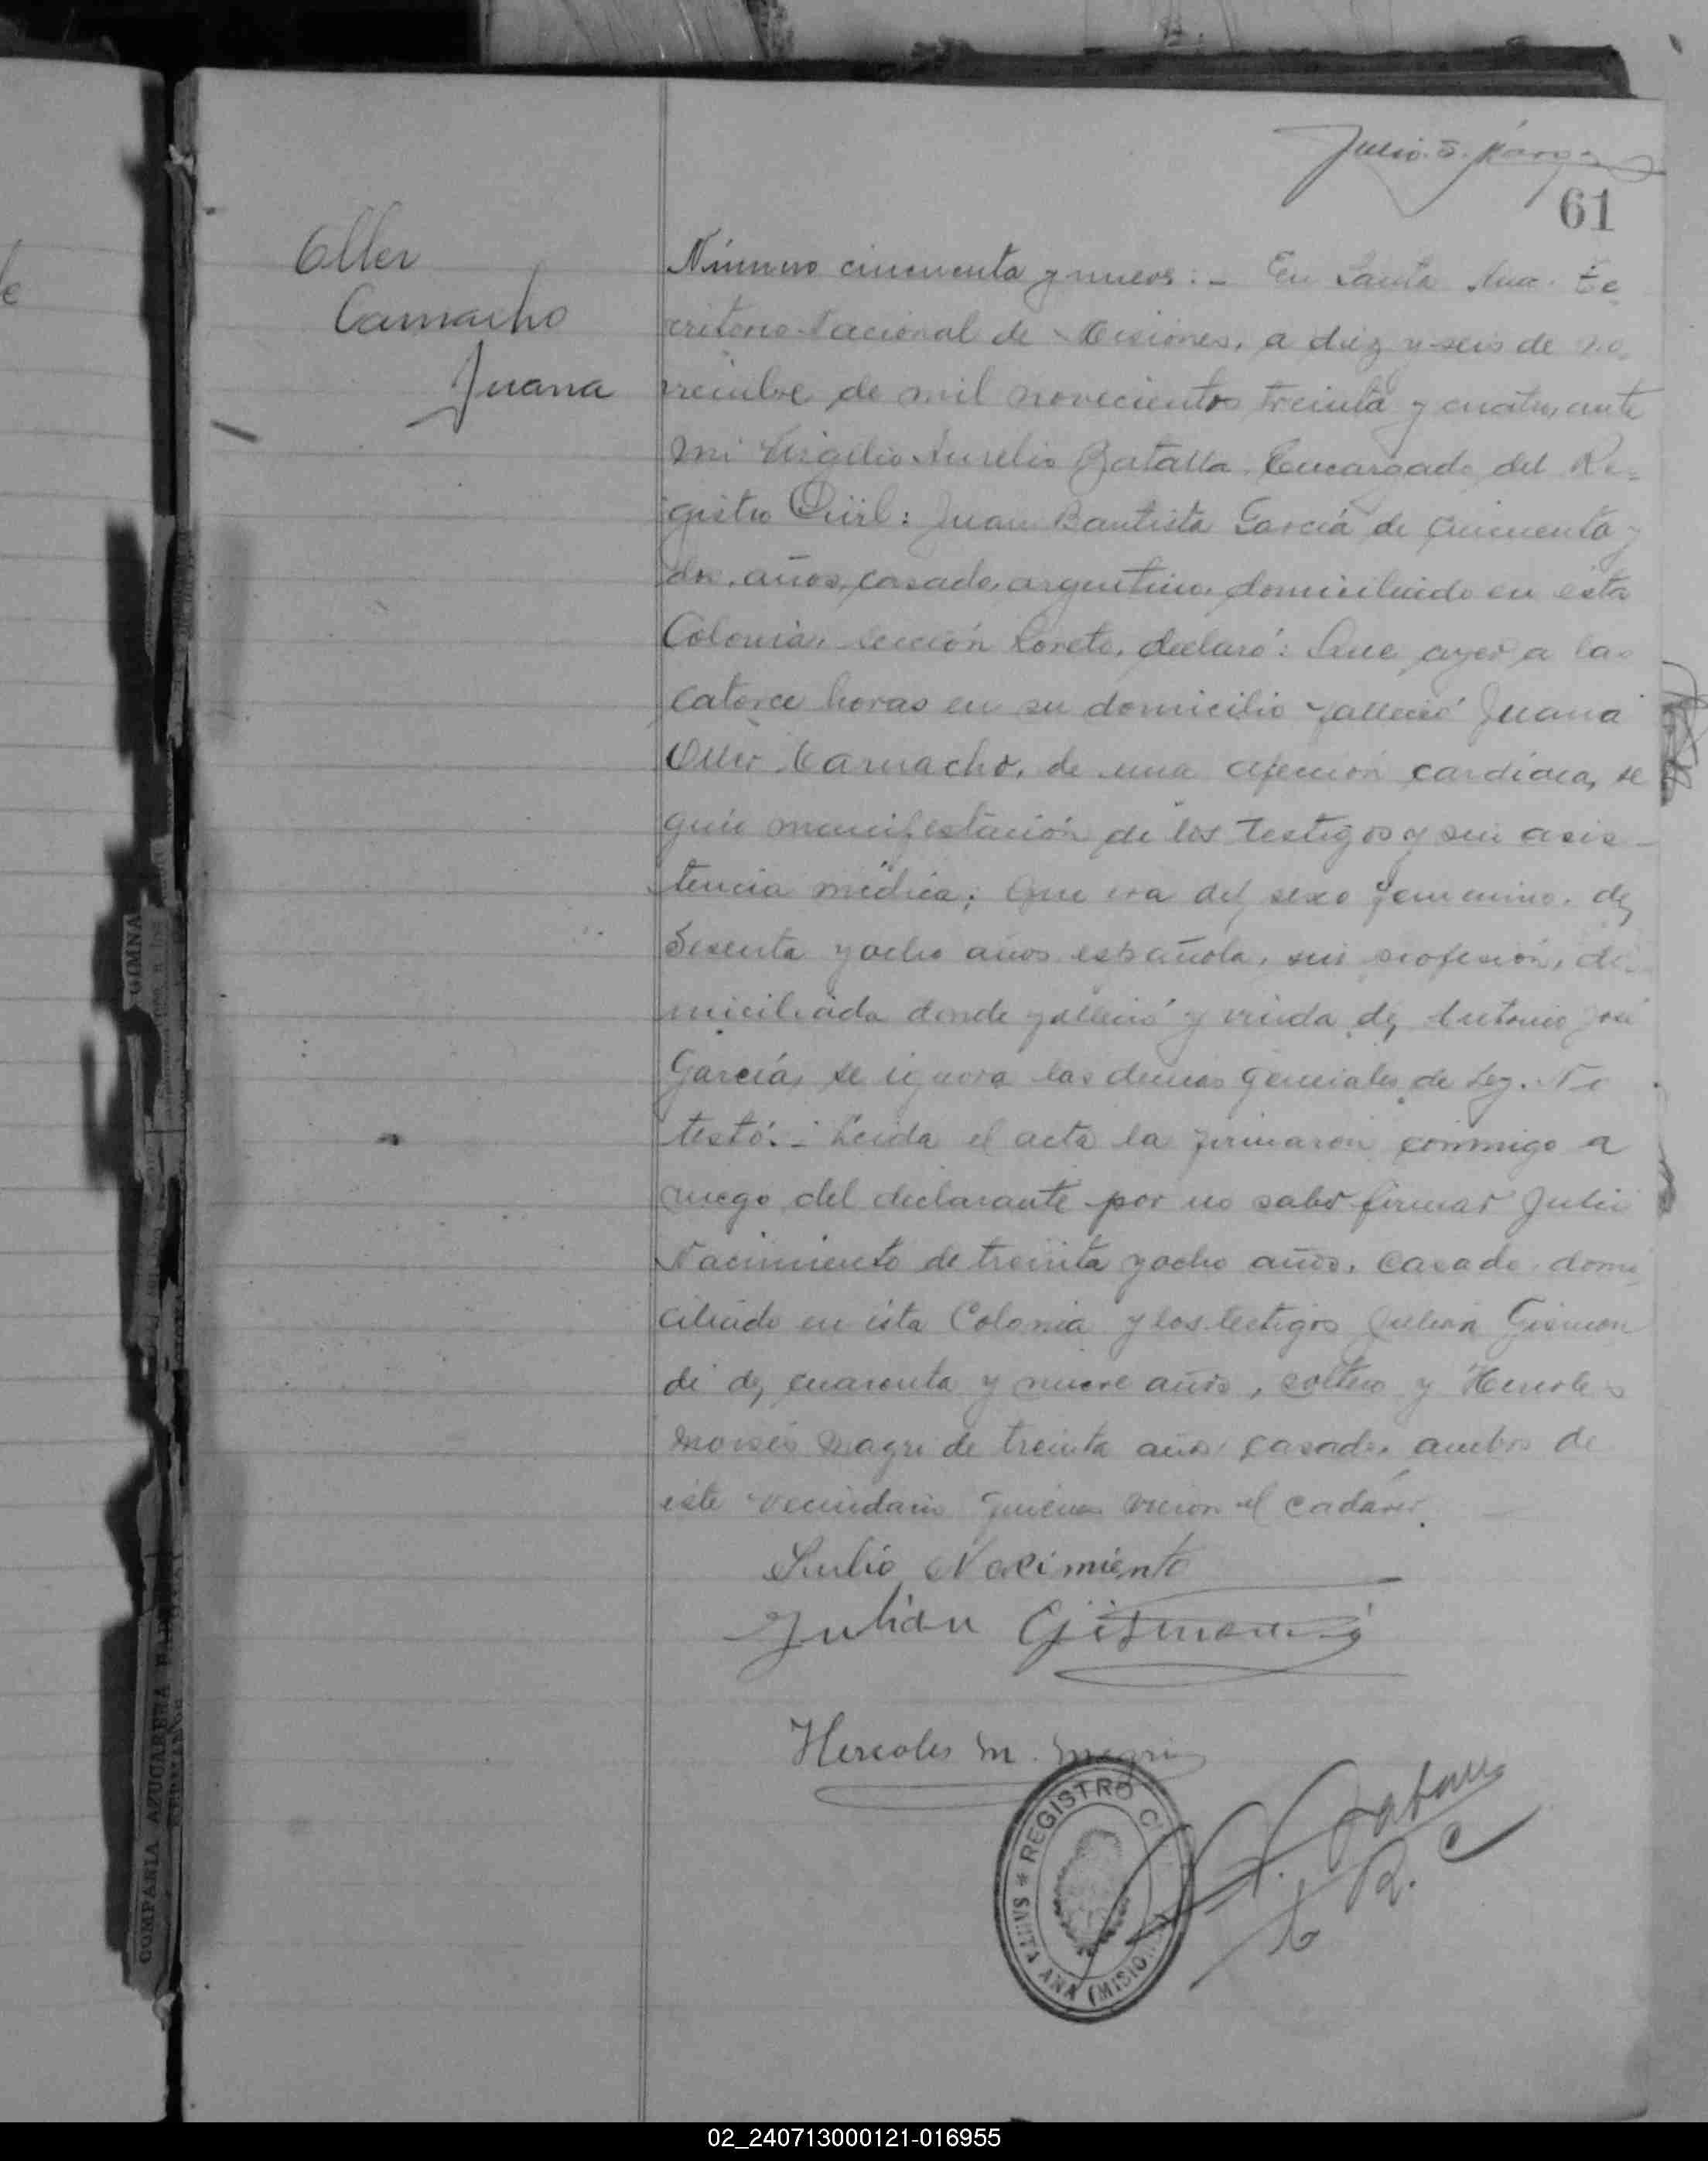 Julio S.
61
Oller
Camacho
Juana
Número cincuenta y nueve:- En Santa Ana. Te
rritorio Nacional de Misiones, a diez y seis de no
viembre de mil novecientos treinta y cuatro, ante
mi Virgilio Aurelio Batalla Encargado del Re=
gistro Civil: Juan Bautista García de cincuenta y
dos años, casado, argentino, domiciliado en esta
Colonia, sección Loreto, declaró: Que ayer a las
catorce horas en su domicilio falleció Juana
Oller Camacho, de una afección cardíaca, se
gún manifestación de los testigos y sin asis-
tencia médica; que era del sexo femenino, de
sesenta y ocho años española, sin profesión, do
miciliada donde falleció y viuda de Antonio José
García, se ignora las demas generales de Ley. No
testó.- Leída el acta la firmaron conmigo a
ruego del declarante por no saber firmar Julio
Nacimiento de treinta y ocho años, casado, domi
ciliado en ésta Colonia y los testigos Julian Gismon
di de cuarenta y nueve años, soltero y Hercoles
Moisés Magri de treinta años casado, ambos de
este vecindario quienes vieron el cadáver.
Julio Nacimiento
Julián Gismondi
Hercoles M. Magri
REGISTRO CI
SANTA ANA (MISIO
R. C
COMPAÑIA AZUCARERA
GIMNA
02_240713000121-016955